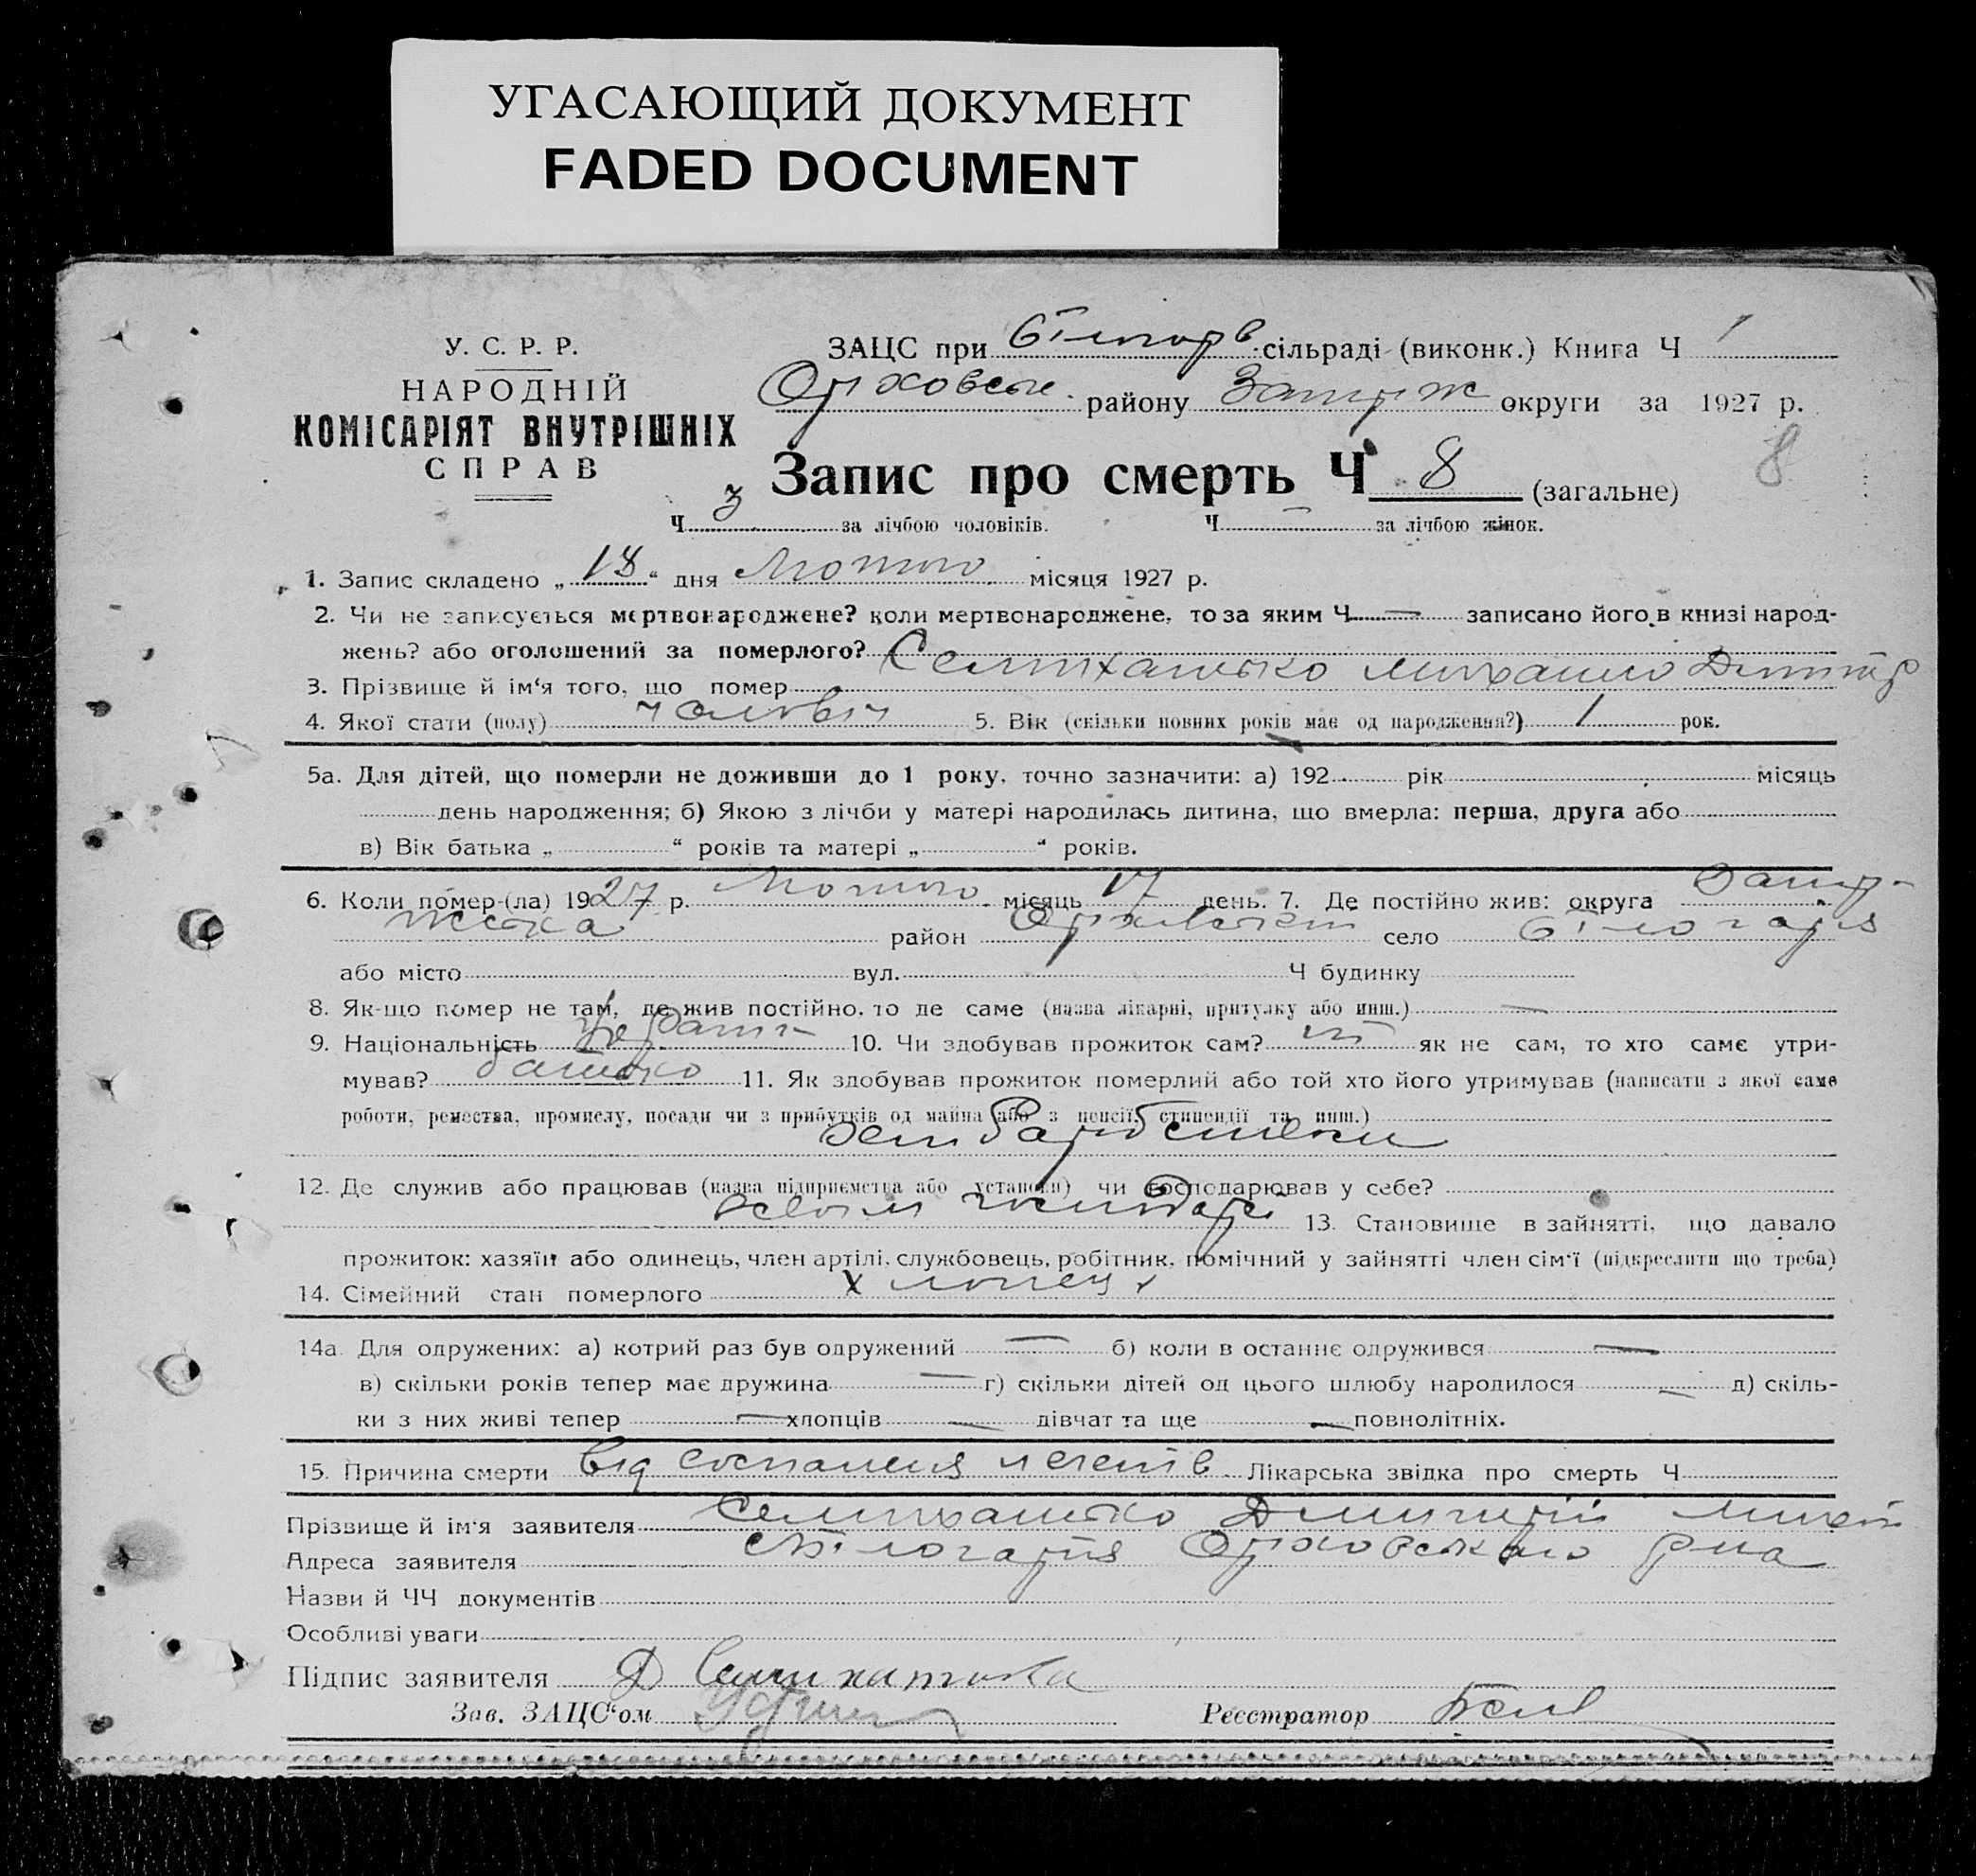 УГАСАЮЩИЙ ДОКУМЕНТ
FADED DOCUMENT
У. С. Р. Р.
НАРОДНІЙ
КОМІСАРІЯТ ВНУТРІШНІХ
СПРАВ
ЗАЦС при сільраді (виконк.) Книга Ч 1
району округи за 1927 р.
8
Запис про смерть Ч 8 (загальне)
Ч 3 за лічбою чоловіків. Ч — за лічбою жінок.
1. Запис складено „ 18 “ дня Лютого місяця 1927 р.
2. Чи не записується мертвонароджене? коли мертвонароджене, то за яким Ч — записано його в книзі народ-
жень? або оголошений за померлого?
3. Прізвище й ім‘я того, що помер Михаило Дмитр
4. Якої стати (полу) 5. Вік (скільки повних років має од народження?) 1 рок.
5а. Для дітей, що померли не доживши до 1 року, точно зазначити: а) 192 рік місяць
день народження; б) Якою з лічби у матері народилась дитина, що вмерла: перша, друга або
в) Вік батька „ “ років та матері „ “ років.
6. Коли помер-(ла) 1927 р. Лютого місяць 17 день. 7. Де постійно жив: округа Запор-
жска район село Білогаря
або місто вул. Ч будинку
8. Як-що помер не там, де жив постійно, то де саме (назва лікарні, притулку або инш.) —
9. Національність 10. Чи здобував прожиток сам? ні як не сам, то хто саме утри-
мував? батько 11. Як здобував прожиток померлий або той хто його утримував (написати з якої саме
роботи, ремества, промислу, посади чи з прибутків од майна або з пенсії, стипендії та инш.)
12. Де служив або працював (назва підприємства або установи) чи господарював у себе?
в своїм 13. Становище в зайнятті, що давало
прожиток: хазяїн або одинець, член артілі, службовець, робітник, помічний у зайнятті член сім‘ї (підкреслити що треба)
14. Сімейний стан померлого хлопець
14а Для одружених: а) котрий раз був одружений — б) коли в останнє одружився —
в) скільки років тепер має дружина — г) скільки дітей од цього шлюбу народилося — д) скіль-
ки з них живі тепер — хлопців — дівчат та ще — повнолітніх.
15. Причина смерти від Лікарська звідка про смерть Ч
Прізвище й ім‘я заявителя Дмитрій
Адреса заявителя Оріховського р-на
Назви й ЧЧ документів
Особливі уваги
Підпис заявителя Д
Зав. ЗАЦС‘ом
Реєстратор